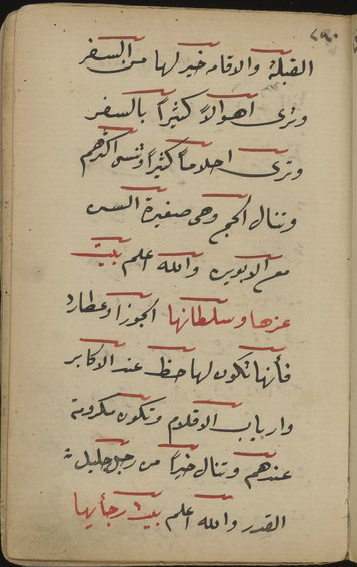 ٢٩٠
القبلة والاقامه خير لها من السفر
وترى اهوالاً كثيراً بالسفر
وترى احلاماً كثيراً وتنسى اكثرهم
وتنال الحج وهى صغيرة السن
مع الابوين والله اعلم بيت
عزها وسلطانها الجوزا وعطارد
فأنها تكون لها حظ عند الاكابر
وارباب الاقلام وتكون مكرومة
عندهم وتنال خيراً من رجل جليل
القدر والله اعلم بيت رجأيها